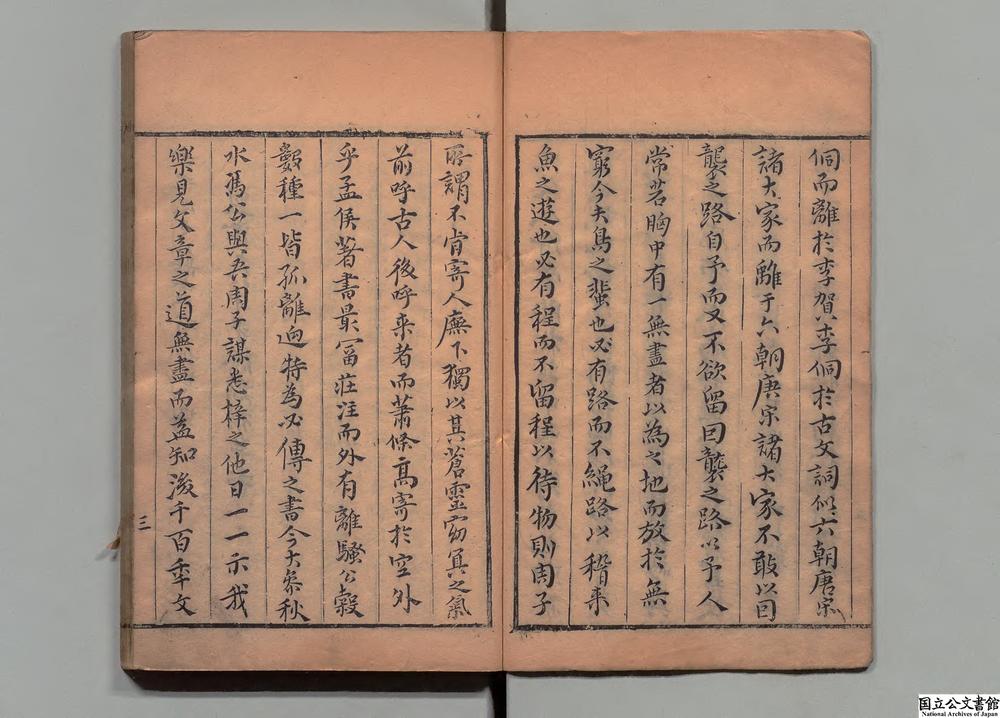 侗而離於李賀李侗於古文詞似六朝唐宋
諸大家而離于六朝唐宋諸大家不敢以囙
襲之路自予而又不欲留囙襲之路以予人
常若胸中有一無盡者以為之地而放於無
窮今夫鳥之蜚也必有路而不繩路以稽来
魚之遊也必有程而不留程以待物則周子
所謂不肯寄人廡下獨以其蒼靈窈冥之氣
前呼古人後呼来者而蕭條髙寄於空外
乎孟侯著書最富莊注而外有離騷公穀
數種一皆孤離迥特為必傳之書今大參秋
水馮公與吾周子謀悉梓之他日一一示我
樂見文章之道無盡而益知後千百年文
三
国立公文書館
National Archives of Japan